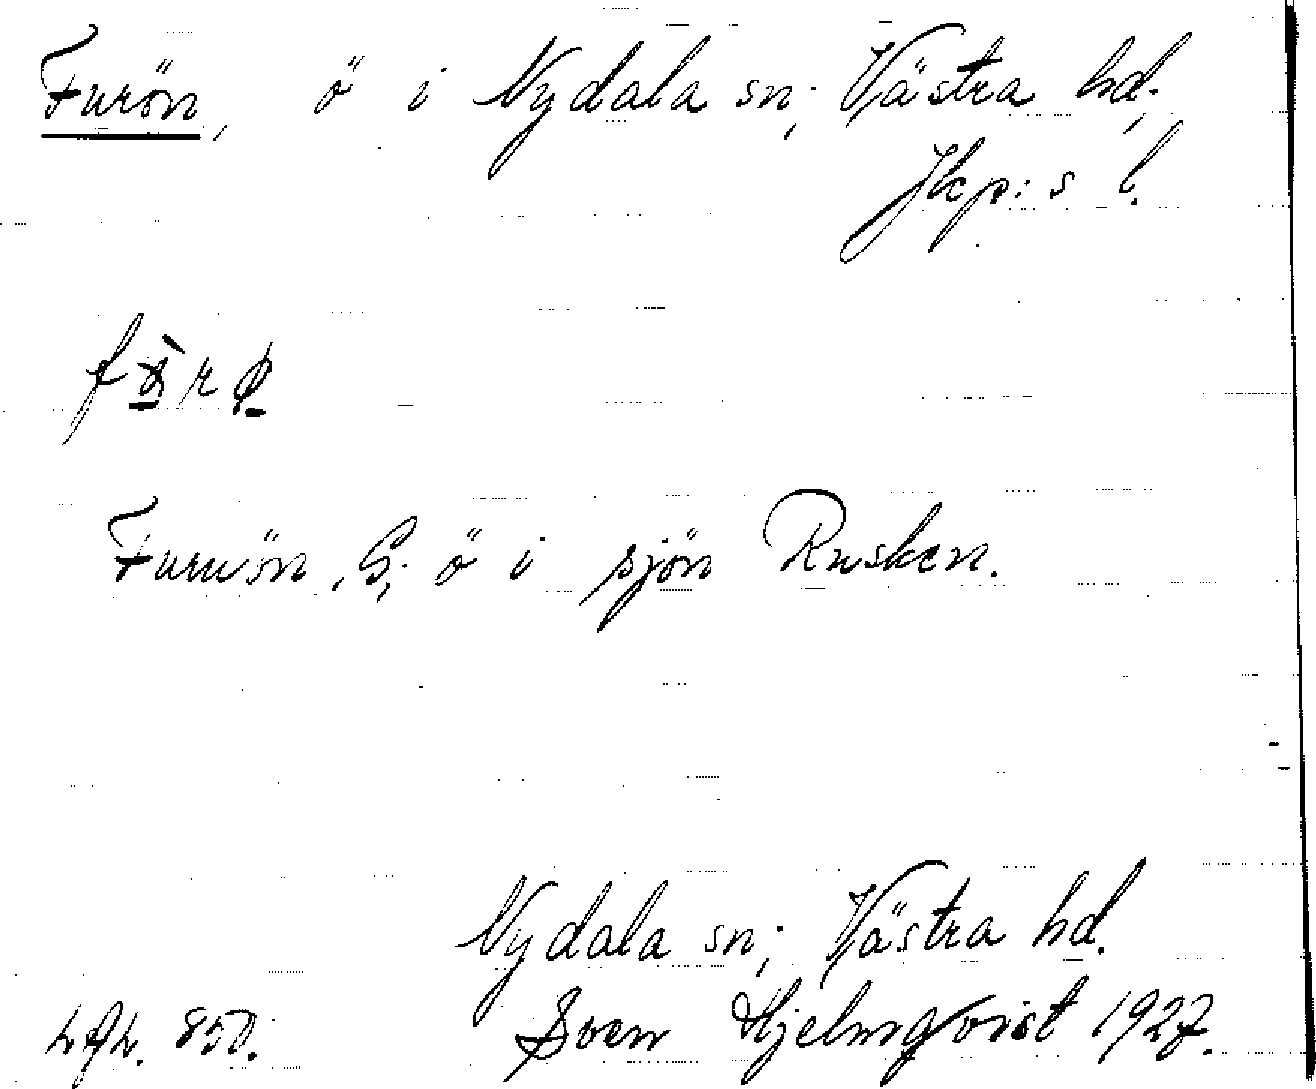 Furön, ö i Nydala sn., Västra hd.,
Jkp:s l.
Furuön, G., ö i sjön Rusken.
Nydala sn., Västra hd.
850. Sven Hjelmqvist 1927.